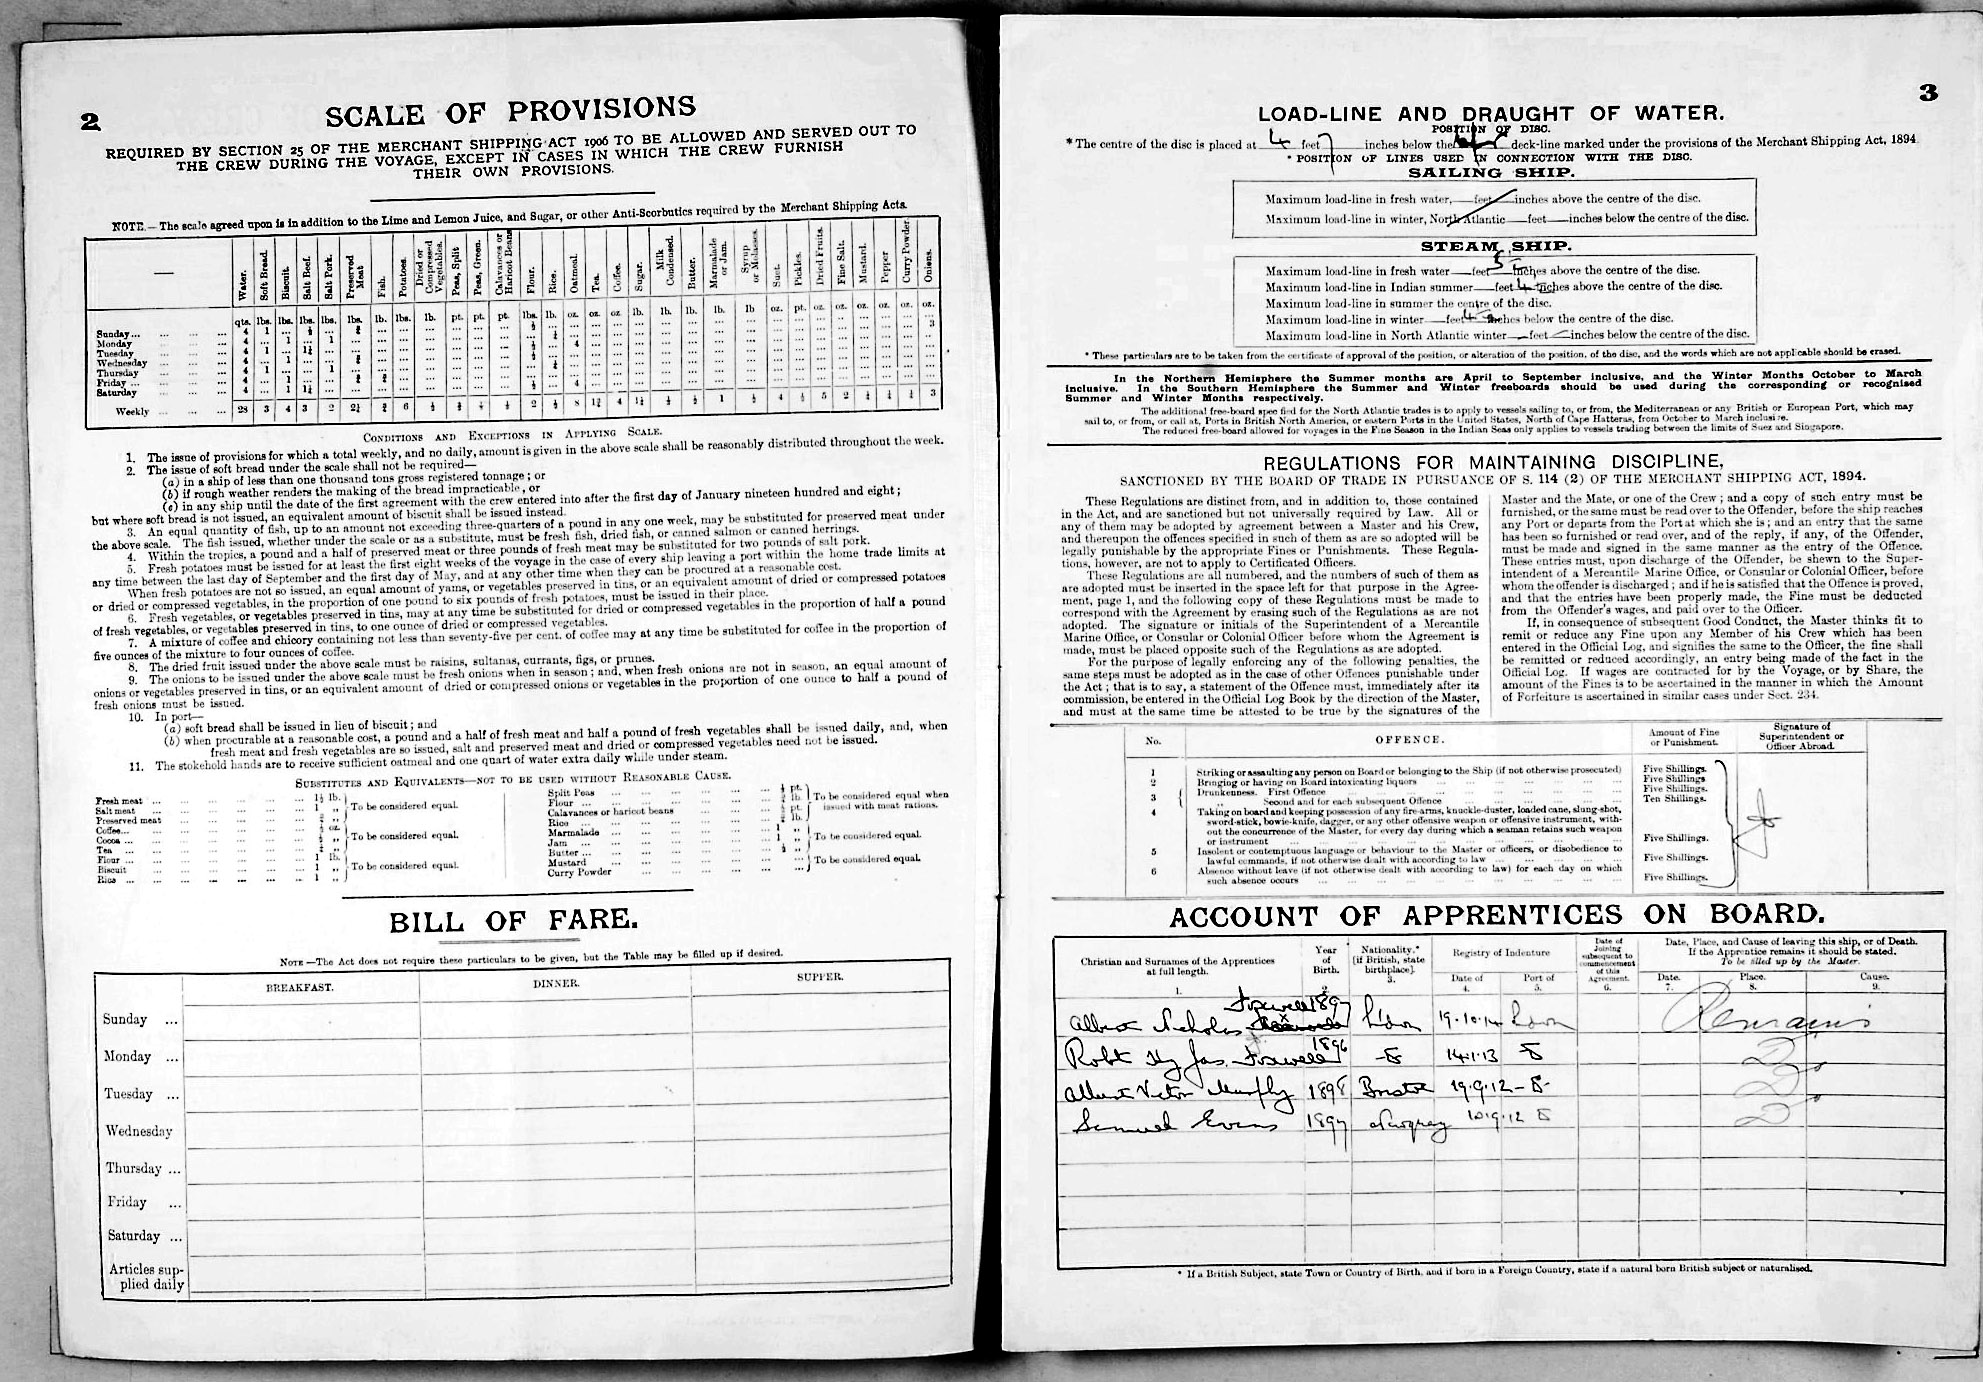 2
SCALE OF PROVISIONS
REQUIRED BY SECTION 25 OF THE MERCHANT SHIPPING ACT 1906 TO BE ALLOWED AND SERVED OUT TO
THE CREW DURING THE VOYAGE, EXCEPT IN CASES IN WHICH THE CREW FURNISH
THEIR OWN PROVISIONS.
NOTE.—The scale agreed upon is in addition to the Lime and Lemon Juice, and Sugar, or other Anti-Scorbutics required by the Merchant Shipping Acts.
— Water. Soft Bread. Biscuit. Salt Beef. Salt Pork. Preserved Meat Fish. Potatoes. Dried or Compressed Vegetables. Peas, Split Peas, Green. Calavances or Haricot Beans Flour. Rice. Oatmeal. Tea. Coffee. Sugar. Milk Condensed. Butter. Marmalade or Jam. Syrup or Molasses. Suet. Pickles. Dried Fruits. Fine Salt. Mustard. Pepper Curry Powder. Onions.
qts. lbs. lbs. lbs. lbs. lbs. lb. lbs. lb. pt. pt. pt. lbs. lb. oz. oz. oz. lb. lb. lb. lb. lb oz. pt. oz. oz. oz. oz. oz. oz.
Sunday ... 4 1
Monday ... 4 ... 1 ... 1
Tuesday ... 4 1 ... 1¼
Wednesday ... 4 ... 1
Thursday ... 4 1 ... ... 1
Friday ... 4 ... 1
Saturday ... 4 ... 1 1¼
Weekly ... 28 3 4 3 2 2¼
CONDITIONS AND EXCEPTIONS IN APPLYING SCALE.
1. The issue of provisions for which a total weekly, and no daily, amount is given in the above scale shall be reasonably distributed throughout the week.
2. The issue of soft bread under the scale shall not be required—
(a) in a ship of less than one thousand tons gross registered tonnage; or
(b) if rough weather renders the making of the bread impracticable, or
(c) in any ship until the date of the first agreement with the crew entered into after the first day of January nineteen hundred and eight;
but where soft bread is not issued, an equivalent amount of biscuit shall be issued instead.
3. An equal quantity of fish, up to an amount not exceeding three-quarters of a pound in any one week, may be substituted for preserved meat under
the above scale. The fish issued, whether under the scale or as a substitute, must be fresh fish, dried fish, or canned salmon or canned herrings.
4. Within the tropics, a pound and a half of preserved meat or three pounds of fresh meat may be substituted for two pounds of salt pork.
5. Fresh potatoes must be issued for at least the first eight weeks of the voyage in the case of every ship leaving a port within the home trade limits at
any time between the last day of September and the first day of May, and at any other time when they can be procured at a reasonable cost.
When fresh potatoes are not so issued, an equal amount of yams, or vegetables preserved in tins, or an equivalent amount of dried or compressed potatoes
or dried or compressed vegetables, in the proportion of one pound to six pounds of fresh potatoes, must be issued in their place.
6. Fresh vegetables, or vegetables preserved in tins, may at any time be substituted for dried or compressed vegetables in the proportion of half a pound
of fresh vegetables, or vegetables preserved in tins, to one ounce of dried or compressed vegetables.
7. A mixture of coffee and chicory containing not less than seventy-five per cent. of coffee may at any time be substituted for coffee in the proportion of
five ounces of the mixture to four ounces of coffee.
8. The dried fruit issued under the above scale must be raisins, sultanas, currants, figs, or prunes.
9. The onions to be issued under the above scale must be fresh onions when in season; and, when fresh onions are not in season, an equal amount of
onions or vegetables preserved in tins, or an equivalent amount of dried or compressed onions or vegetables in the proportion of one ounce to half a pound of
fresh onions must be issued.
10. In port—
(a) soft bread shall be issued in lieu of biscuit; and
(b) when procurable at a reasonable cost, a pound and a half of fresh meat and half a pound of fresh vegetables shall be issued daily, and, when
fresh meat and fresh vegetables are so issued, salt and preserved meat and dried or compressed vegetables need not be issued.
11. The stokehold hands are to receive sufficient oatmeal and one quart of water extra daily while under steam.
SUBSTITUTES AND EQUIVALENTS—NOT TO BE USED WITHOUT REASONABLE CAUSE.
Fresh meat ... 1½ lb.
Salt meat ... 1 „ To be considered equal.
Preserved meat
Coffee...
Cocoa ... To be considered equal.
Tea ...
Flour ... 1 lb.
Biscuit ... 1 „ To be considered equal.
Rice ... 1 „
Split Peas ... pt.
Flour ... lb. To be considered equal when
Calavances or haricot beans pt. issued with meat rations.
Rice ... lb.
Marmalade ... 1 „
Jam ... 1 „ To be considered equal.
Butter ... ½ „
Mustard ... To be considered equal.
Curry Powder ...
BILL OF FARE.
NOTE—The Act does not require these particulars to be given, but the Table may be filled up if desired.
BREAKFAST. DINNER. SUPPER.
Sunday ...
Monday ...
Tuesday ...
Wednesday
Thursday ...
Friday ...
Saturday ...
Articles sup-
plied daily
3
LOAD-LINE AND DRAUGHT OF WATER.
POSITION OF DISC.
* The centre of the disc is placed at 4 feet 7 inches below the deck-line marked under the provisions of the Merchant Shipping Act, 1894.
* POSITION OF LINES USED IN CONNECTION WITH THE DISC.
SAILING SHIP.
Maximum load-line in fresh water, feet inches above the centre of the disc.
Maximum load-line in winter, North Atlantic feet inches below the centre of the disc.
STEAM SHIP.
Maximum load-line in fresh water feet 5 inches above the centre of the disc.
Maximum load-line in Indian summer feet 4 inches above the centre of the disc.
Maximum load-line in summer the centre of the disc.
Maximum load-line in winter feet 4 inches below the centre of the disc.
Maximum load-line in North Atlantic winter feet inches below the centre of the disc.
* These particulars are to be taken from the certificate of approval of the position, or alteration of the position, of the disc, and the words which are not applicable should be erased.
In the Northern Hemisphere the Summer months are April to September inclusive, and the Winter Months October to March
inclusive. In the Southern Hemisphere the Summer and Winter freeboards should be used during the corresponding or recognised
Summer and Winter Months respectively.
The additional free-board specified for the North Atlantic trades is to apply to vessels sailing to, or from, the Mediterranean or any British or European Port, which may
sail to, or from, or call at, Ports in British North America, or eastern Ports in the United States, North of Cape Hatteras, from October to March inclusive.
The reduced free-board allowed for voyages in the Fine Season in the Indian Seas only applies to vessels trading between the limits of Suez and Singapore.
REGULATIONS FOR MAINTAINING DISCIPLINE,
SANCTIONED BY THE BOARD OF TRADE IN PURSUANCE OF S. 114 (2) OF THE MERCHANT SHIPPING ACT, 1894.
These Regulations are distinct from, and in addition to, those contained
in the Act, and are sanctioned but not universally required by Law. All or
any of them may be adopted by agreement between a Master and his Crew,
and thereupon the offences specified in such of them as are so adopted will be
legally punishable by the appropriate Fines or Punishments. These Regula-
tions, however, are not to apply to Certificated Officers.
These Regulations are all numbered, and the numbers of such of them as
are adopted must be inserted in the space left for that purpose in the Agree-
ment, page 1, and the following copy of these Regulations must be made to
correspond with the Agreement by erasing such of the Regulations as are not
adopted. The signature or initials of the Superintendent of a Mercantile
Marine Office, or Consular or Colonial Officer before whom the Agreement is
made, must be placed opposite such of the Regulations as are adopted.
For the purpose of legally enforcing any of the following penalties, the
same steps must be adopted as in the case of other Offences punishable under
the Act; that is to say, a statement of the Offence must, immediately after its
commission, be entered in the Official Log Book by the direction of the Master,
and must at the same time be attested to be true by the signatures of the
Master and the Mate, or one of the Crew; and a copy of such entry must be
furnished, or the same must be read over to the Offender, before the ship reaches
any Port or departs from the Port at which she is; and an entry that the same
has been so furnished or read over, and of the reply, if any, of the Offender,
must be made and signed in the same manner as the entry of the Offence.
These entries must, upon discharge of the Offender, be shewn to the Super-
intendent of a Mercantile Marine Office, or Consular or Colonial Officer, before
whom the offender is discharged; and if he is satisfied that the Offence is proved,
and that the entries have been properly made, the Fine must be deducted
from the Offender's wages, and paid over to the Officer.
If, in consequence of subsequent Good Conduct, the Master thinks fit to
remit or reduce any Fine upon any Member of his Crew which has been
entered in the Official Log, and signifies the same to the Officer, the fine shall
be remitted or reduced accordingly, an entry being made of the fact in the
Official Log. If wages are contracted for by the Voyage, or by Share, the
amount of the Fines is to be ascertained in the manner in which the Amount
of Forfeiture is ascertained in similar cases under Sect. 234.
No. OFFENCE. Amount of Fine or Punishment. Signature of Superintendent or Officer Abroad.
1 Striking or assaulting any person on Board or belonging to the Ship (if not otherwise prosecuted) Five Shillings.
2 Bringing or having on Board intoxicating liquors ... Five Shillings
3 Drunkenness. First Offence Five Shillings.
„ Second and for each subsequent Offence ... Ten Shillings.
4 Taking on board and keeping possession of any fire-arms, knuckle-duster, loaded cane, slung-shot,
sword-stick, bowie-knife, dagger, or any other offensive weapon or offensive instrument, with-
out the concurrence of the Master, for every day during which a seaman retains such weapon
or instrument ... Five Shillings.
5 Insolent or contemptuous language or behaviour to the Master or officers, or disobedience to
lawful commands, if not otherwise dealt with according to law ... Five Shillings.
6 Absence without leave (if not otherwise dealt with according to law) for each day on which
such absence occurs ... Five Shillings.
ACCOUNT OF APPRENTICES ON BOARD.
Christian and Surnames of the Apprentices at full length. 1. Year of Birth. 2. Nationality.* [if British, state birthplace]. 3. Registry of Indenture Date of 4. Port of 5. Date of Joining subsequent to commencement of this Agreement. 6. Date, Place, and Cause of leaving this ship, or of Death. If the Apprentice remains it should be stated. To be filled up by the Master. Date. 7. Place. 8. Cause. 9.
Albert Nicholas Foxwell 1897 London 19.10.14 London Remains
Robt Hy Jas. Foxwell 1896 Do 14.1.13 Do Do
Albert Victor Murphy 1898 Bristol 19.9.12 Do Do
Samuel Evans 1897 Newquay 10.9.12 Do Do
* If a British Subject, state Town or Country of Birth, and if born in a Foreign Country, state if a natural born British subject or naturalised.